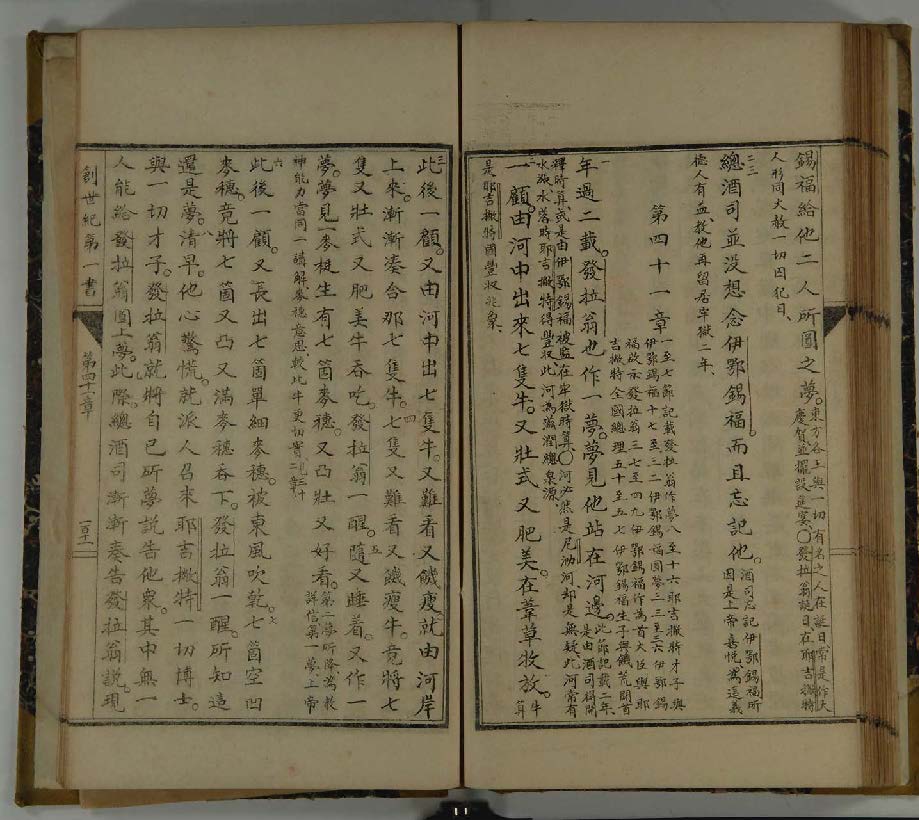 錫福給他二人所圓之夢。東方各王與一切有名之人在誕日常是作大
慶賀並擺設進宴、〇發拉翁誕日在耶吉撇特
人形同大赦一切囚犯日、
二三
總酒司並没想念伊鄂錫福。而且忘記他。酒司忘記伊鄂錫福所
因是上帝喜悅、為這義
德人有益、救他再留居牢獄二年、
第四十一章
一至七節記載發拉翁作夢八至十六耶吉撇術才子與
伊鄂錫福十七至三二伊鄂錫福圓夢三三至三六伊鄂錫
福啟示發拉翁三七至四九伊鄂錫福作為首大臣與耶
吉撇特全國總理五十至五七伊鄂錫福生子與饑荒開首
一
年過二載。發拉翁也作一夢。夢見他站在河邊。此節記載二年、
是由酒司得開
釋時算、或是由伊鄂錫福被監在牢獄時算、〇河必然是尼泐河却是無疑、此河常有
水漲水落時耶吉撇特得豐收、此河為滋潤總泉源、
二
一顧。由河中出來七隻牛。又壯式又肥美。在葦草牧放。牛
算
是耶吉撇特國豐收兆象、
三
此後一顧。又由河中出七隻牛。又難看又饑瘦。就由河岸
上來。漸漸湊合那七隻牛。四七隻又難看又饑瘦牛。竟將七
隻又壯式又肥美牛吞吃。發拉翁一醒。五隨又睡着。又作一
夢。夢見一麥梃生有七箇麥穗。又凸壯又好看。第二夢所降為教
詳信第一夢、上帝
神能力當同一講解麥穗意思、較比牛更切實、
六
此後一顧。又長出七箇單細麥穗。被東風吹乾。七七箇空凹
麥穗。竟將七箇又凸又滿麥穗吞下。發拉翁一醒。所知這
還是夢。八清早。他心驚慌。就派人召來耶吉撇特一切博士。
與一切才子。發拉翁就將自己所夢説告他衆。其中無一
人能給發拉翁圓上夢。九此際。總酒司漸漸奏告發拉翁説。現
創世紀第一書
第四十一章